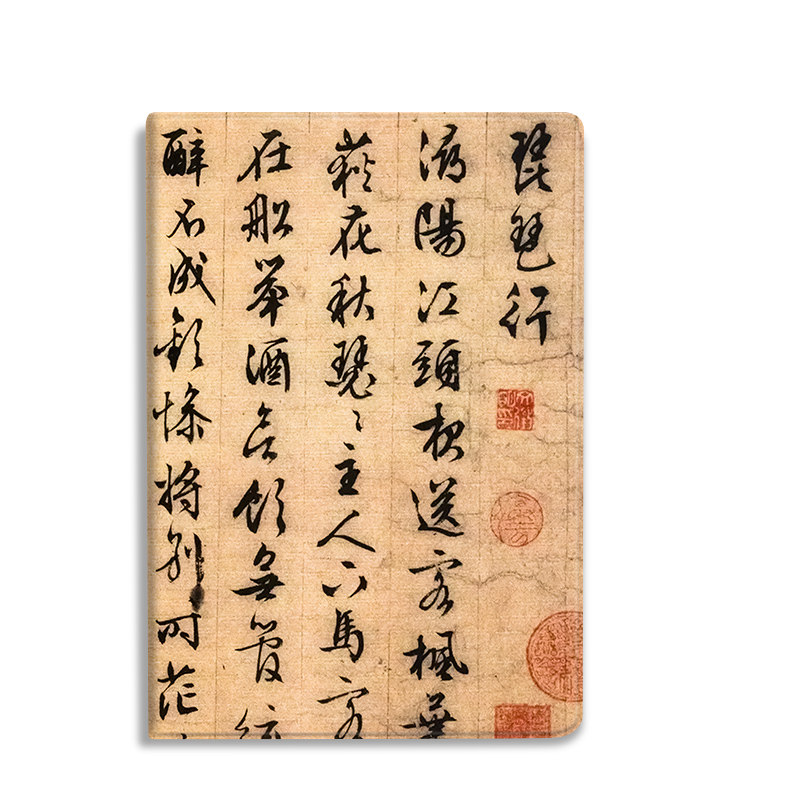 琵琶行
潯陽江頭夜送客楓葉
荻花秋瑟〻主人下馬客
在船舉酒欲飲無管絃
醉不成歡慘將別時茫